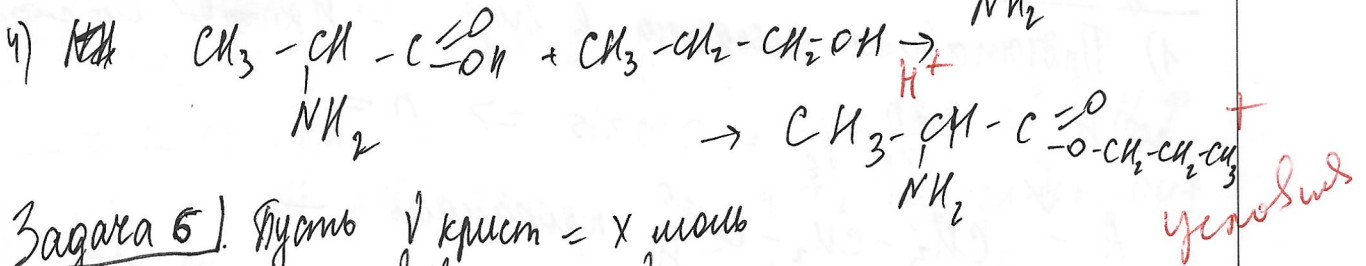 NH₂
4) CH₃ – CH – C =O –OH + CH₃ – CH₂ – CH₂ – OH →
H⁺
NH₂
→ CH₃ – CH – C =O –O–CH₂–CH₂–CH₃ +
NH₂
условия
Задача 6). Пусть ν крист = x моль